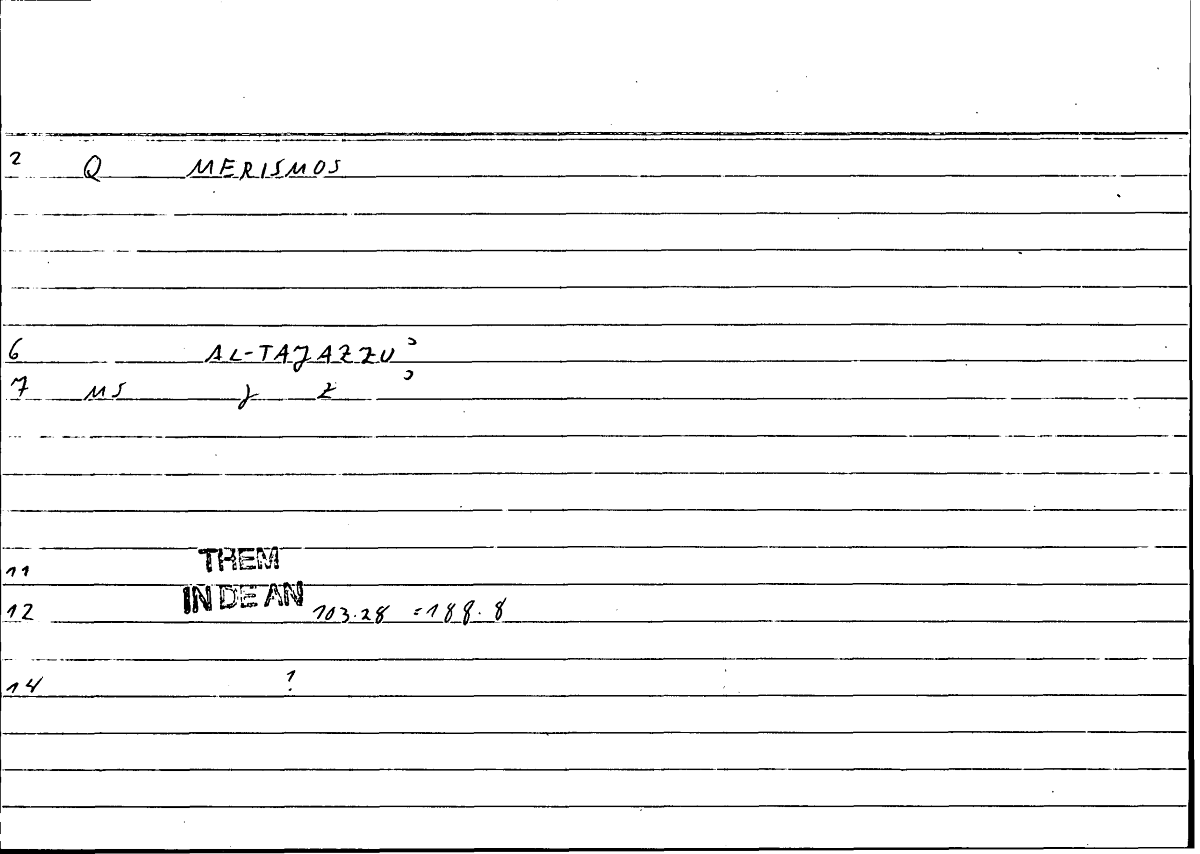 2 Q MERISMOS
6 AL-TAJAZZU ɔ
7 MS J Z ɔ
11 THEM
12 IN DE AN 103.28 = 188.8
14 !